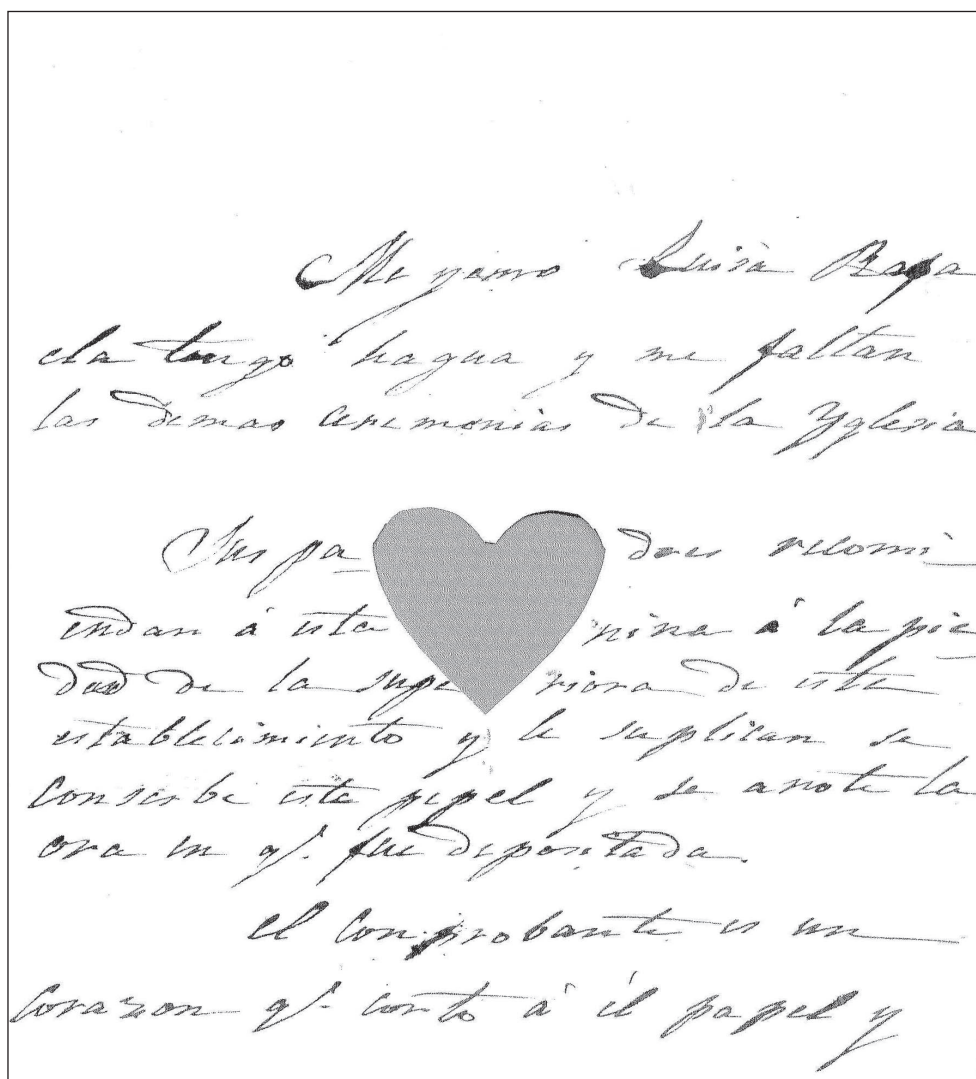 Me yamo Luisa Rafa
ela tengo hagua y me faltan
las demas ceremonias de la Yglesia
Sus pa dres recomi
endan á esta nina á la pie
dad de la supe riora de este
establecimiento y le suplican se
conserbe este papel y se anote la
ora en q.e fue depositada.
el comprobante es un
corazon q.e corto á él papel y